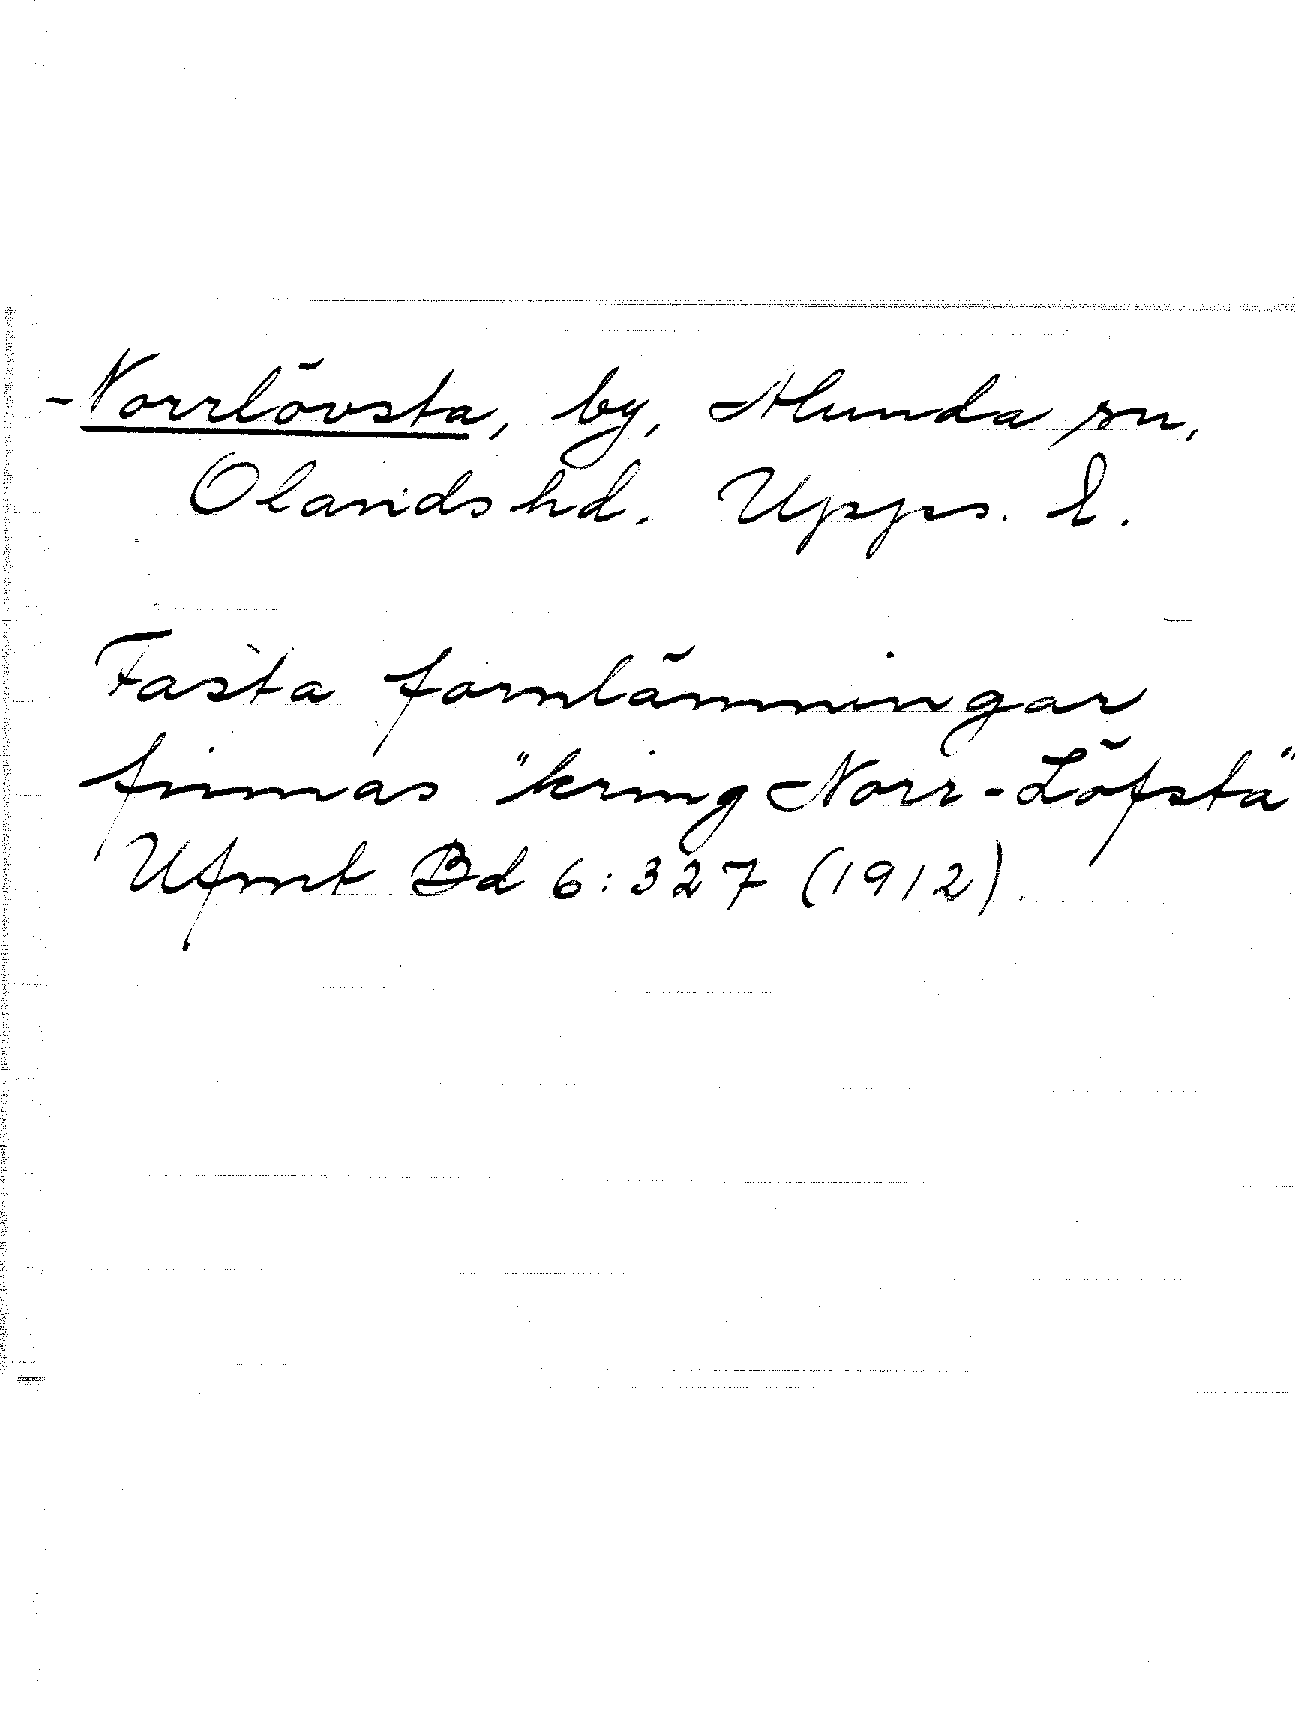 Norrlövsta, by, Alunda sn,
Olands hd. Upps. l.
Fasta fornlämningar
finnas "kring Norr-Löfsta"
Ufmt Bd 6:327 (1912).